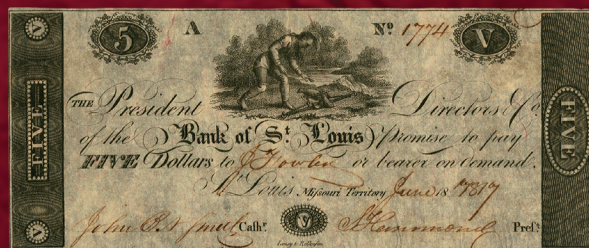 5 A Nº 1774 V
THE President Directors & Cº
of the Bank of St Louis promise to pay
FIVE Dollars to or bearer on demand.
St Louis, Missouri Territory June 18 1817
John Cash.r Hammond Pres.t
FIVE
FIVE
V